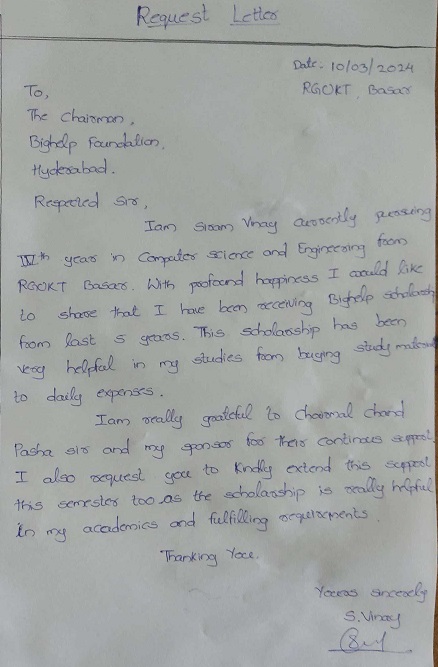 Request Letter
Date. 10/03/2024
RGUKT, Basar
To,
The Chairman,
Bighelp Foundation,
Hyderabad.
Respected Sir,
Iam Siram Vinay currently pursuing
IVth year in Computer science and Engineering from
RGUKT Basar. With profound happiness I would like
to share that I have been receiving Bighelp scholarsh
from last 5 years. This scholarship has been
very helpful in my studies from buying study material
to daily expenses.
Iam really grateful to Chairmal Chand
Pasha sir and my sponsor for their continous support
I also request you to Kindly extend this support
this semester too as the scholarship is really helpful
in my academics and fulfilling requirements.
Thanking You.
Yours sincerely
S. Vinay